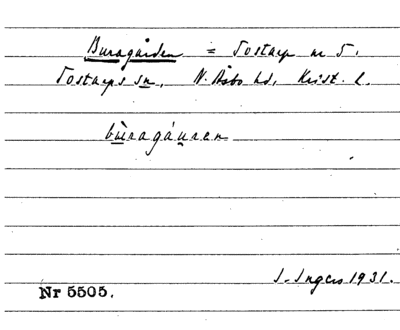 Buragården = Tostarp nr 5.
Tostarps sn, N. Åsbo hd, Krist. l.
bùragáuren
I. Ingers 1931.
Nr 5505.